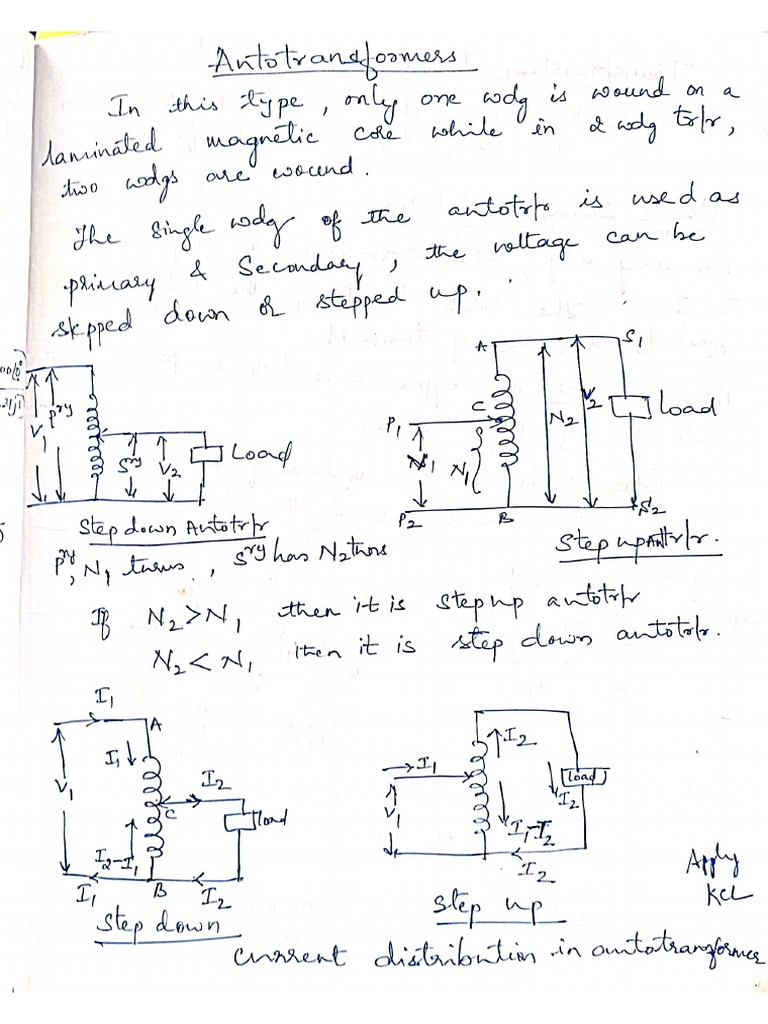 Autotransformers
In this type, only one wdg is wound on a
laminated magnetic core while in 2 wdg tr/r,
two wdgs are wound.
The single wdg of the autotr/r is used as
primary & Secondary, the voltage can be
stepped down or stepped up.
V1
Pry
Sry
V2
Load
Step down Autotr/r
A
C
P1
N1
N1
P2
B
N2
V2
S1
Load
S2
Step up Autr/r.
Pry, N1 turns, Sry has N2 turns
If N2 > N1 then it is step up autotr/r
N2 < N1 then it is step down autotr/r.
I1
A
I1
V1
I2
C
load
I2-I1
I1
B
I2
Step down
I1
I2
V1
Load
I2
I1-I2
I2
Step up
Apply
KCL
current distribution in autotransformer